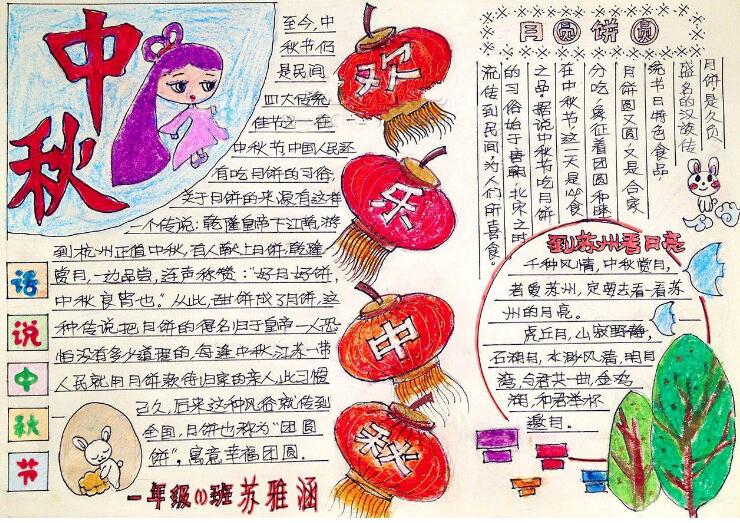 中秋
至今,中
秋节仍
是民间
四大传统
佳节之一在
中秋节中国人民还
有吃月饼的习俗,
关于月饼的来源有这样
一个传说:乾隆皇帝下江南,游
到杭州正值中秋,有人献上月饼,乾隆
赏月,一边品尝,连声称赞:“好月好饼,
中秋良宵也。”从此,甜饼成了月饼,这
种传说把月饼的得名归于皇帝一人恐
怕没有多少道理的,每逢中秋,江苏一带
人民就用月饼款待归家的亲人,此习惯
已久,后来这种风俗就传到
全国,月饼也称为“团圆
饼”,寓意幸福团圆.
话说中秋节
一年级(1)班 苏雅涵
欢乐中秋
月圆饼圆
月饼是久负
盛名的汉族传
统节日特色食品,
月饼圆又圆,又是合家
分吃,象征着团圆和睦
在中秋节这一天是必食
之品.据说中秋节吃月饼
的习俗始于唐朝.北宋之时
流传到民间,为人们所喜食。
到苏州看月亮
千种风情,中秋赏月,
若爱苏州,定要去看一看苏
州的月亮。
虎丘月,山寂野静,
石湖月,水渺风清,明月
湾,与君共一曲,金鸡
湖,和君举杯
邀月.